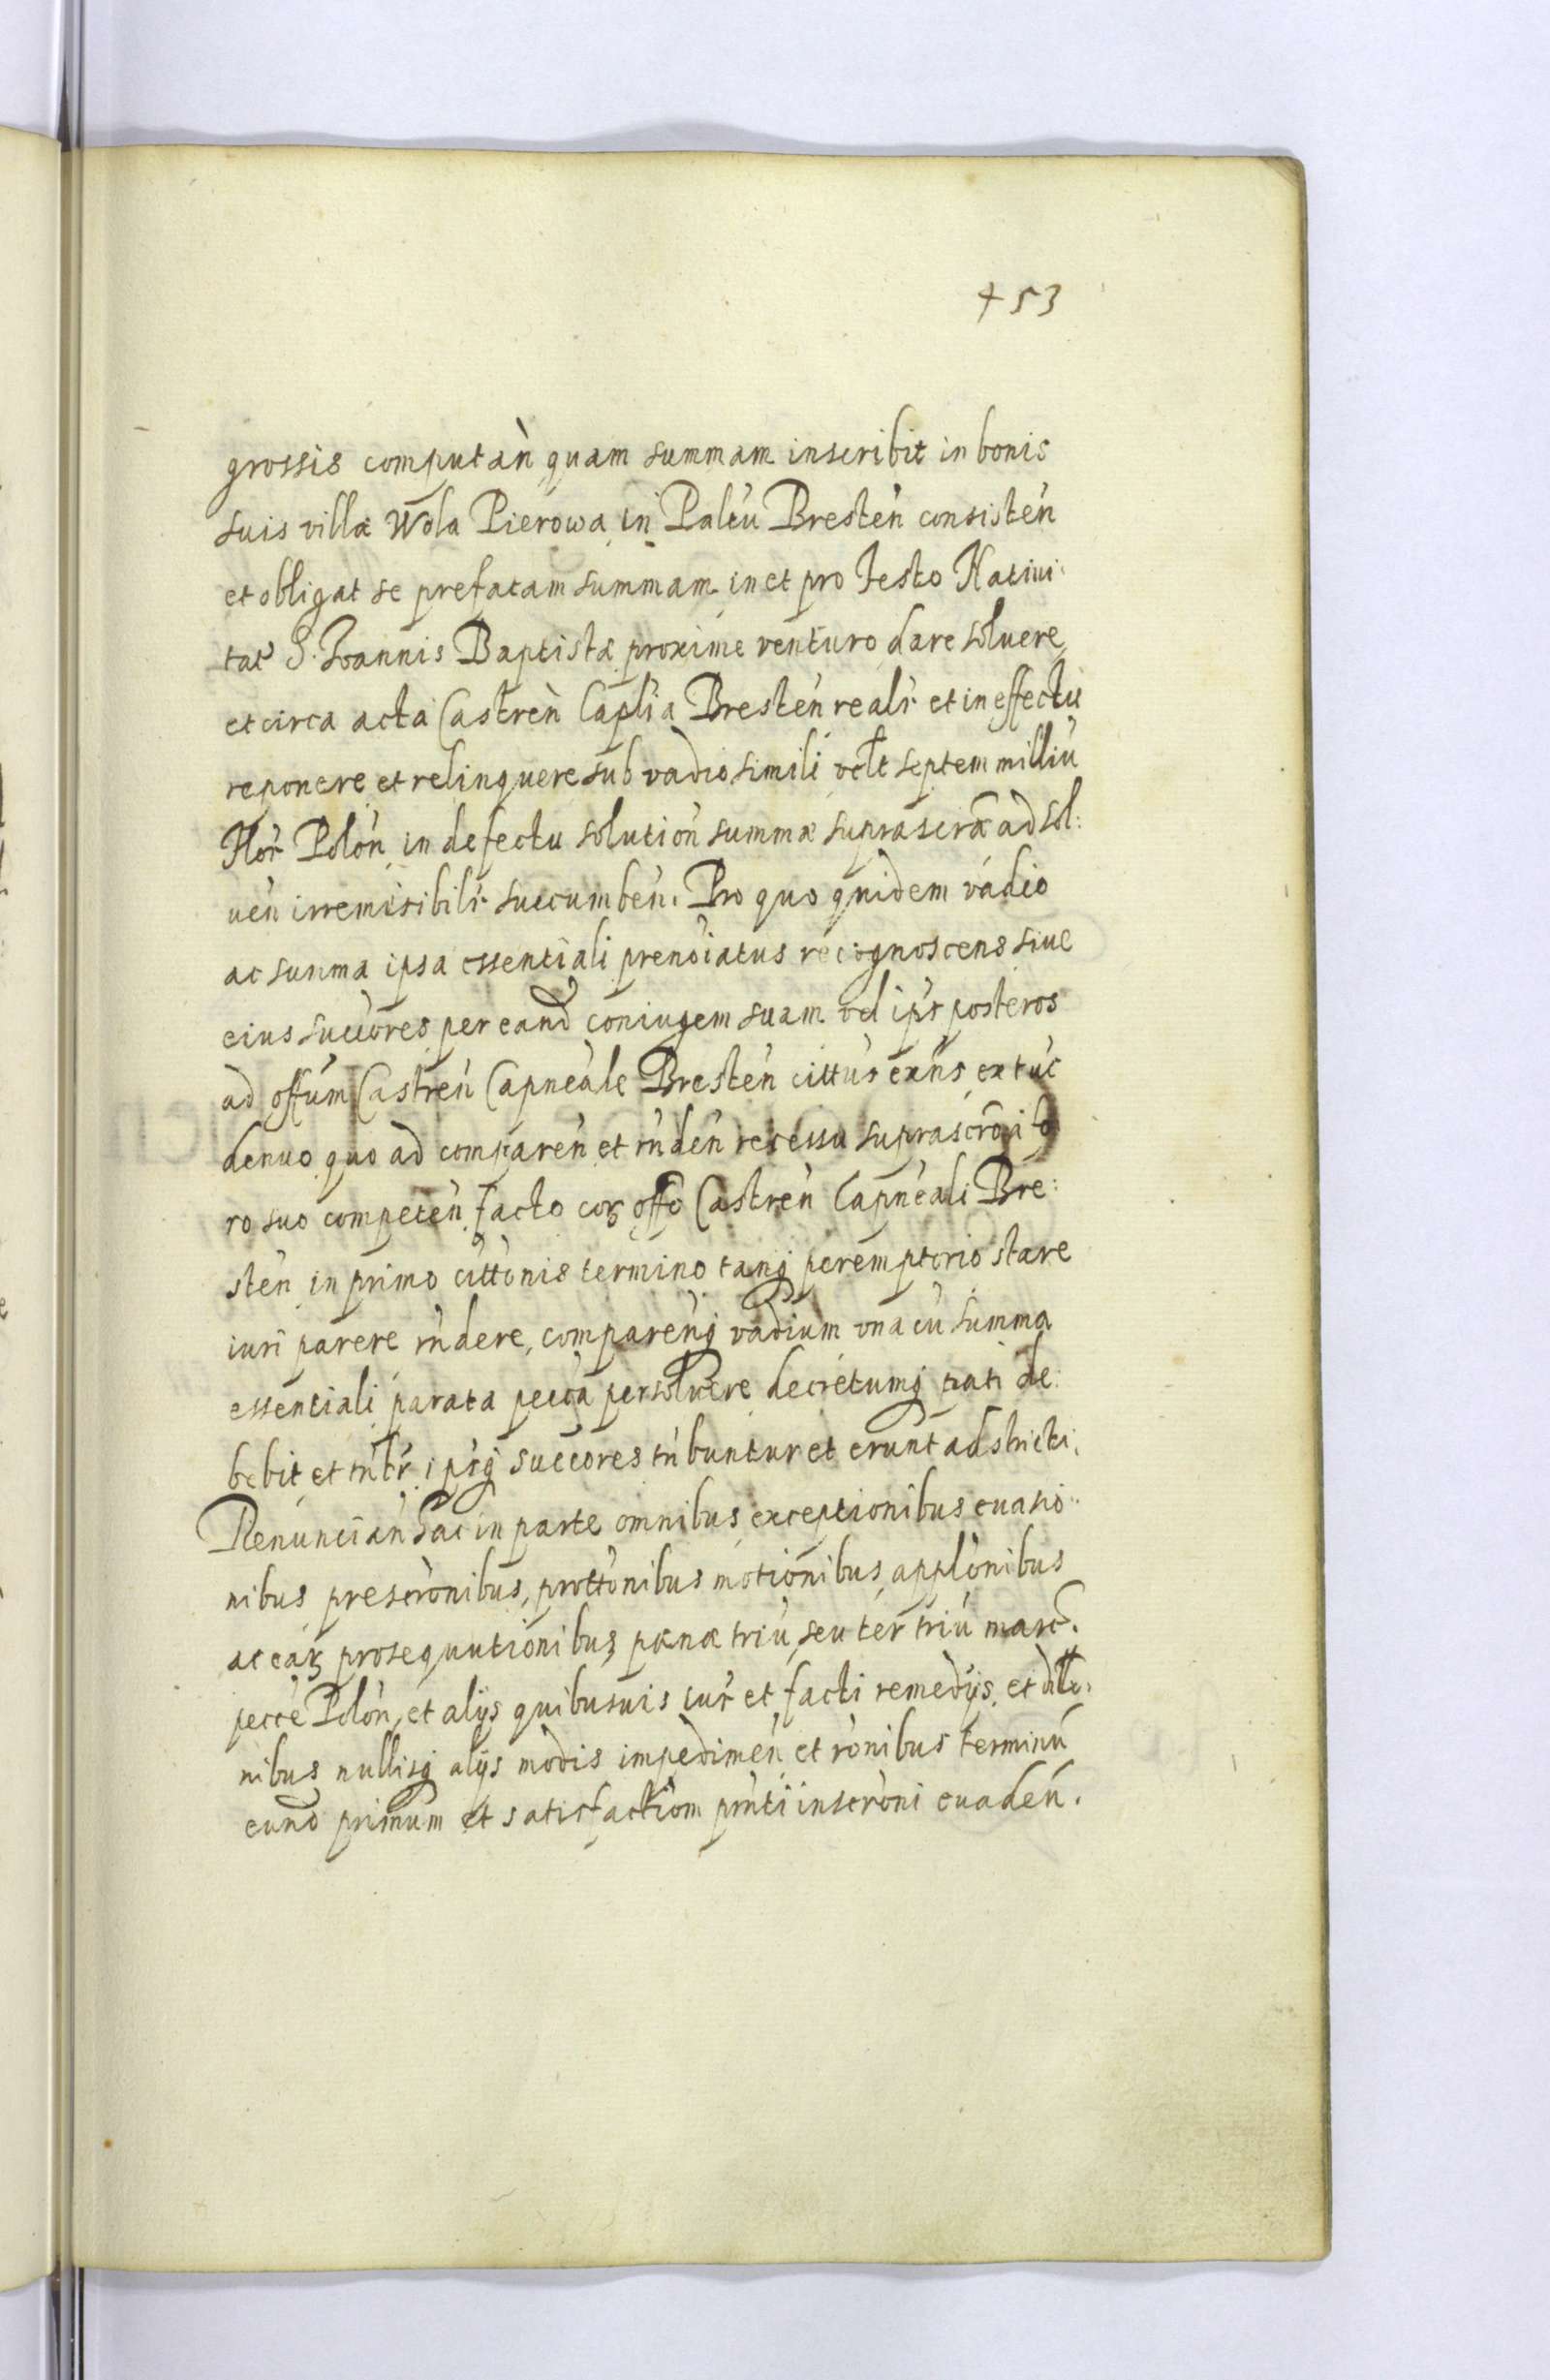 453
grossis computan̄ quam summam inscribit in bonis
suis villæ Wola Pierowa in Paltu Bresten̄ consisten̄
et obligat se prefatam summam in et pro Festo Natiui
tat̄ S. Joannis Baptistæ proxime venturo dare soluere
et circa acta Castren̄ Caplia Bresten̄ realr̄ et in effectu
reponere et relinquere sub vadio simili velt septem milliū
Flor̄ Polon̄ in defectu solution̄ summæ suprascr̄æ ad sol:
uen̄ irremisibilr̄ succumben̄. Pro quo quidem vadio
ac summa ipsa essentiali prenoīatus recognoscens siue
eius succores per eand̄ coniugem suam vel ips̄r posteros
ad offum Castren̄ Capneāle Bresten̄ cittus exn̄s ex tūc
denuo quo ad comparen̄ et rn̄den̄ recessu suprascr̄o
ro suo competen̄ facto corꝫ offo Castren̄ Capneāli Bre:
sten̄ in primo cittōnis termino tanq̄ peremptorio stare
iuri parere rn̄dere, comparenq̄ vadium vna cū summa
essentiali parata pecc̄a persoluere decretumq̄ pati de:
bebit et tn̄btr̄ ipsiq̄ succores tn̄buntur et erunt adstricti.
Renuncian̄ hac in parte omnibus exceptionibus euasio
nibus prescrōnibus, prottōnibus motionibus applōnibus
ac earꝫ prosequutionibus pænæ triū, seu ter triū marc̄.
pecc̄e Polon̄, et alijs quibusuis iur̄ et facti remedijs, et
nibus nullisq̄ alijs modis impedimen̄ et rōnibus terminū
eund̄ primum et satisfactiom pn̄ti inscrōni euaden̄.